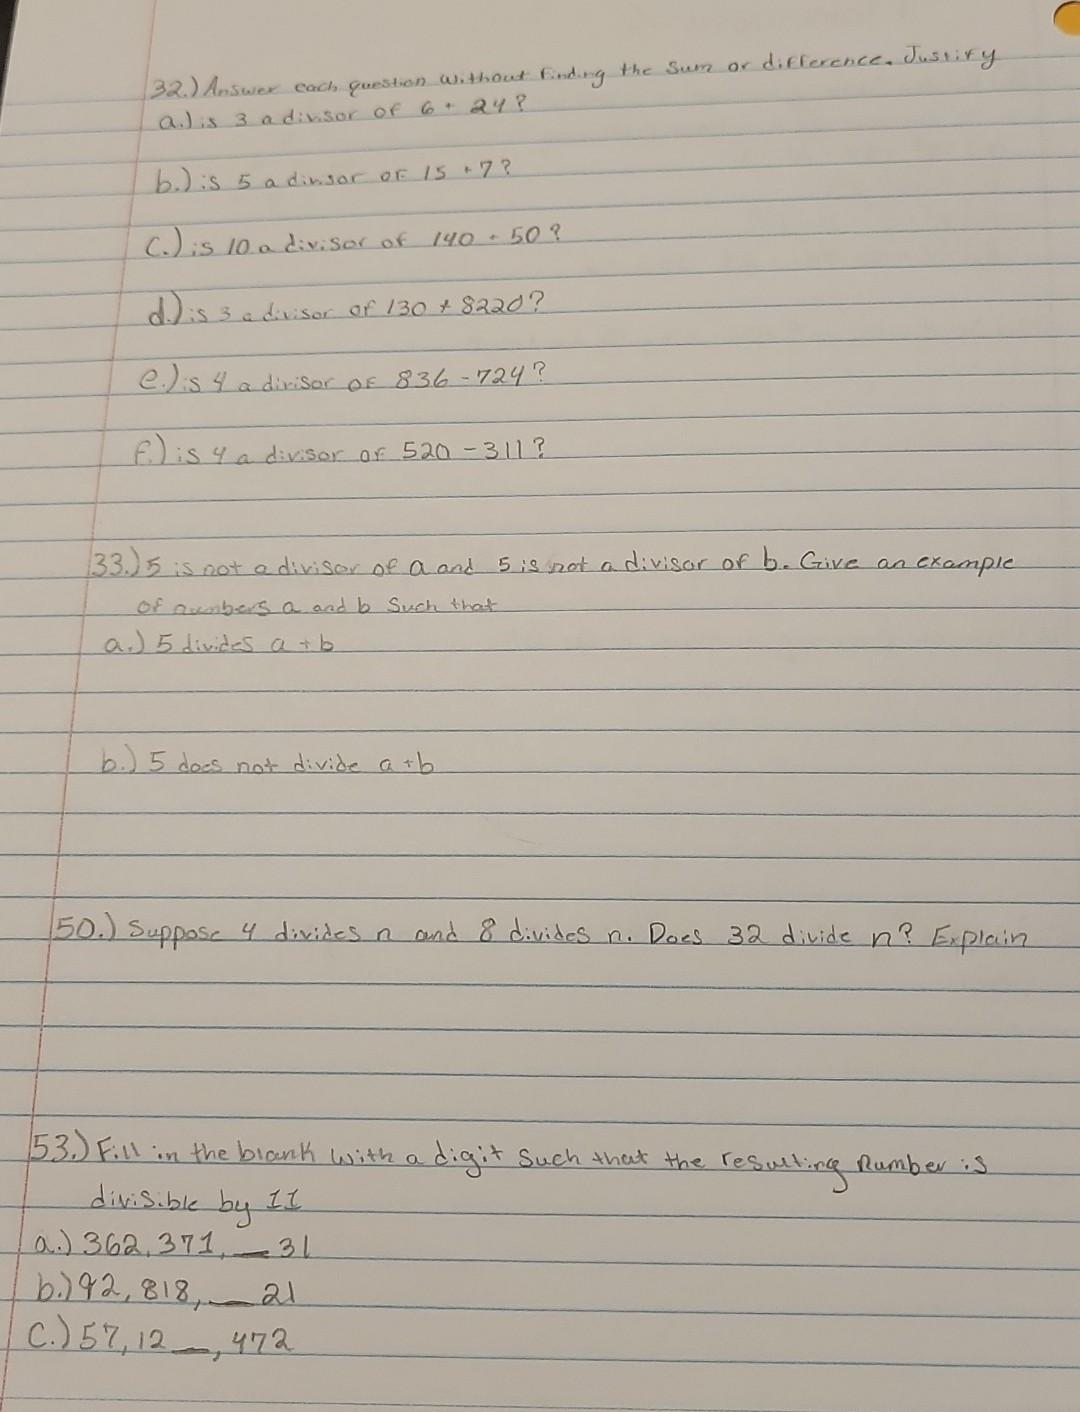 32.) Answer each question without finding the sum or difference. Justify
a.) is 3 a divisor of 6 + 24?
b.) is 5 a divisor of 15 + 7?
C.) is 10 a divisor of 140 - 50?
d.) is 3 a divisor of 130 + 8220?
e.) is 4 a divisor of 836 - 724?
f.) is 4 a divisor of 520 - 311?
33.) 5 is not a divisor of a and 5 is not a divisor of b. Give an example
of numbers a and b Such that
a.) 5 divides a + b
b.) 5 does not divide a + b
50.) Suppose 4 divides n and 8 divides n. Does 32 divide n? Explain
53.) Fill in the blank with a digit such that the resulting number is
divisible by 11
a.) 362,371,__31
b.) 92,818,__21
C.) 57,12__,472